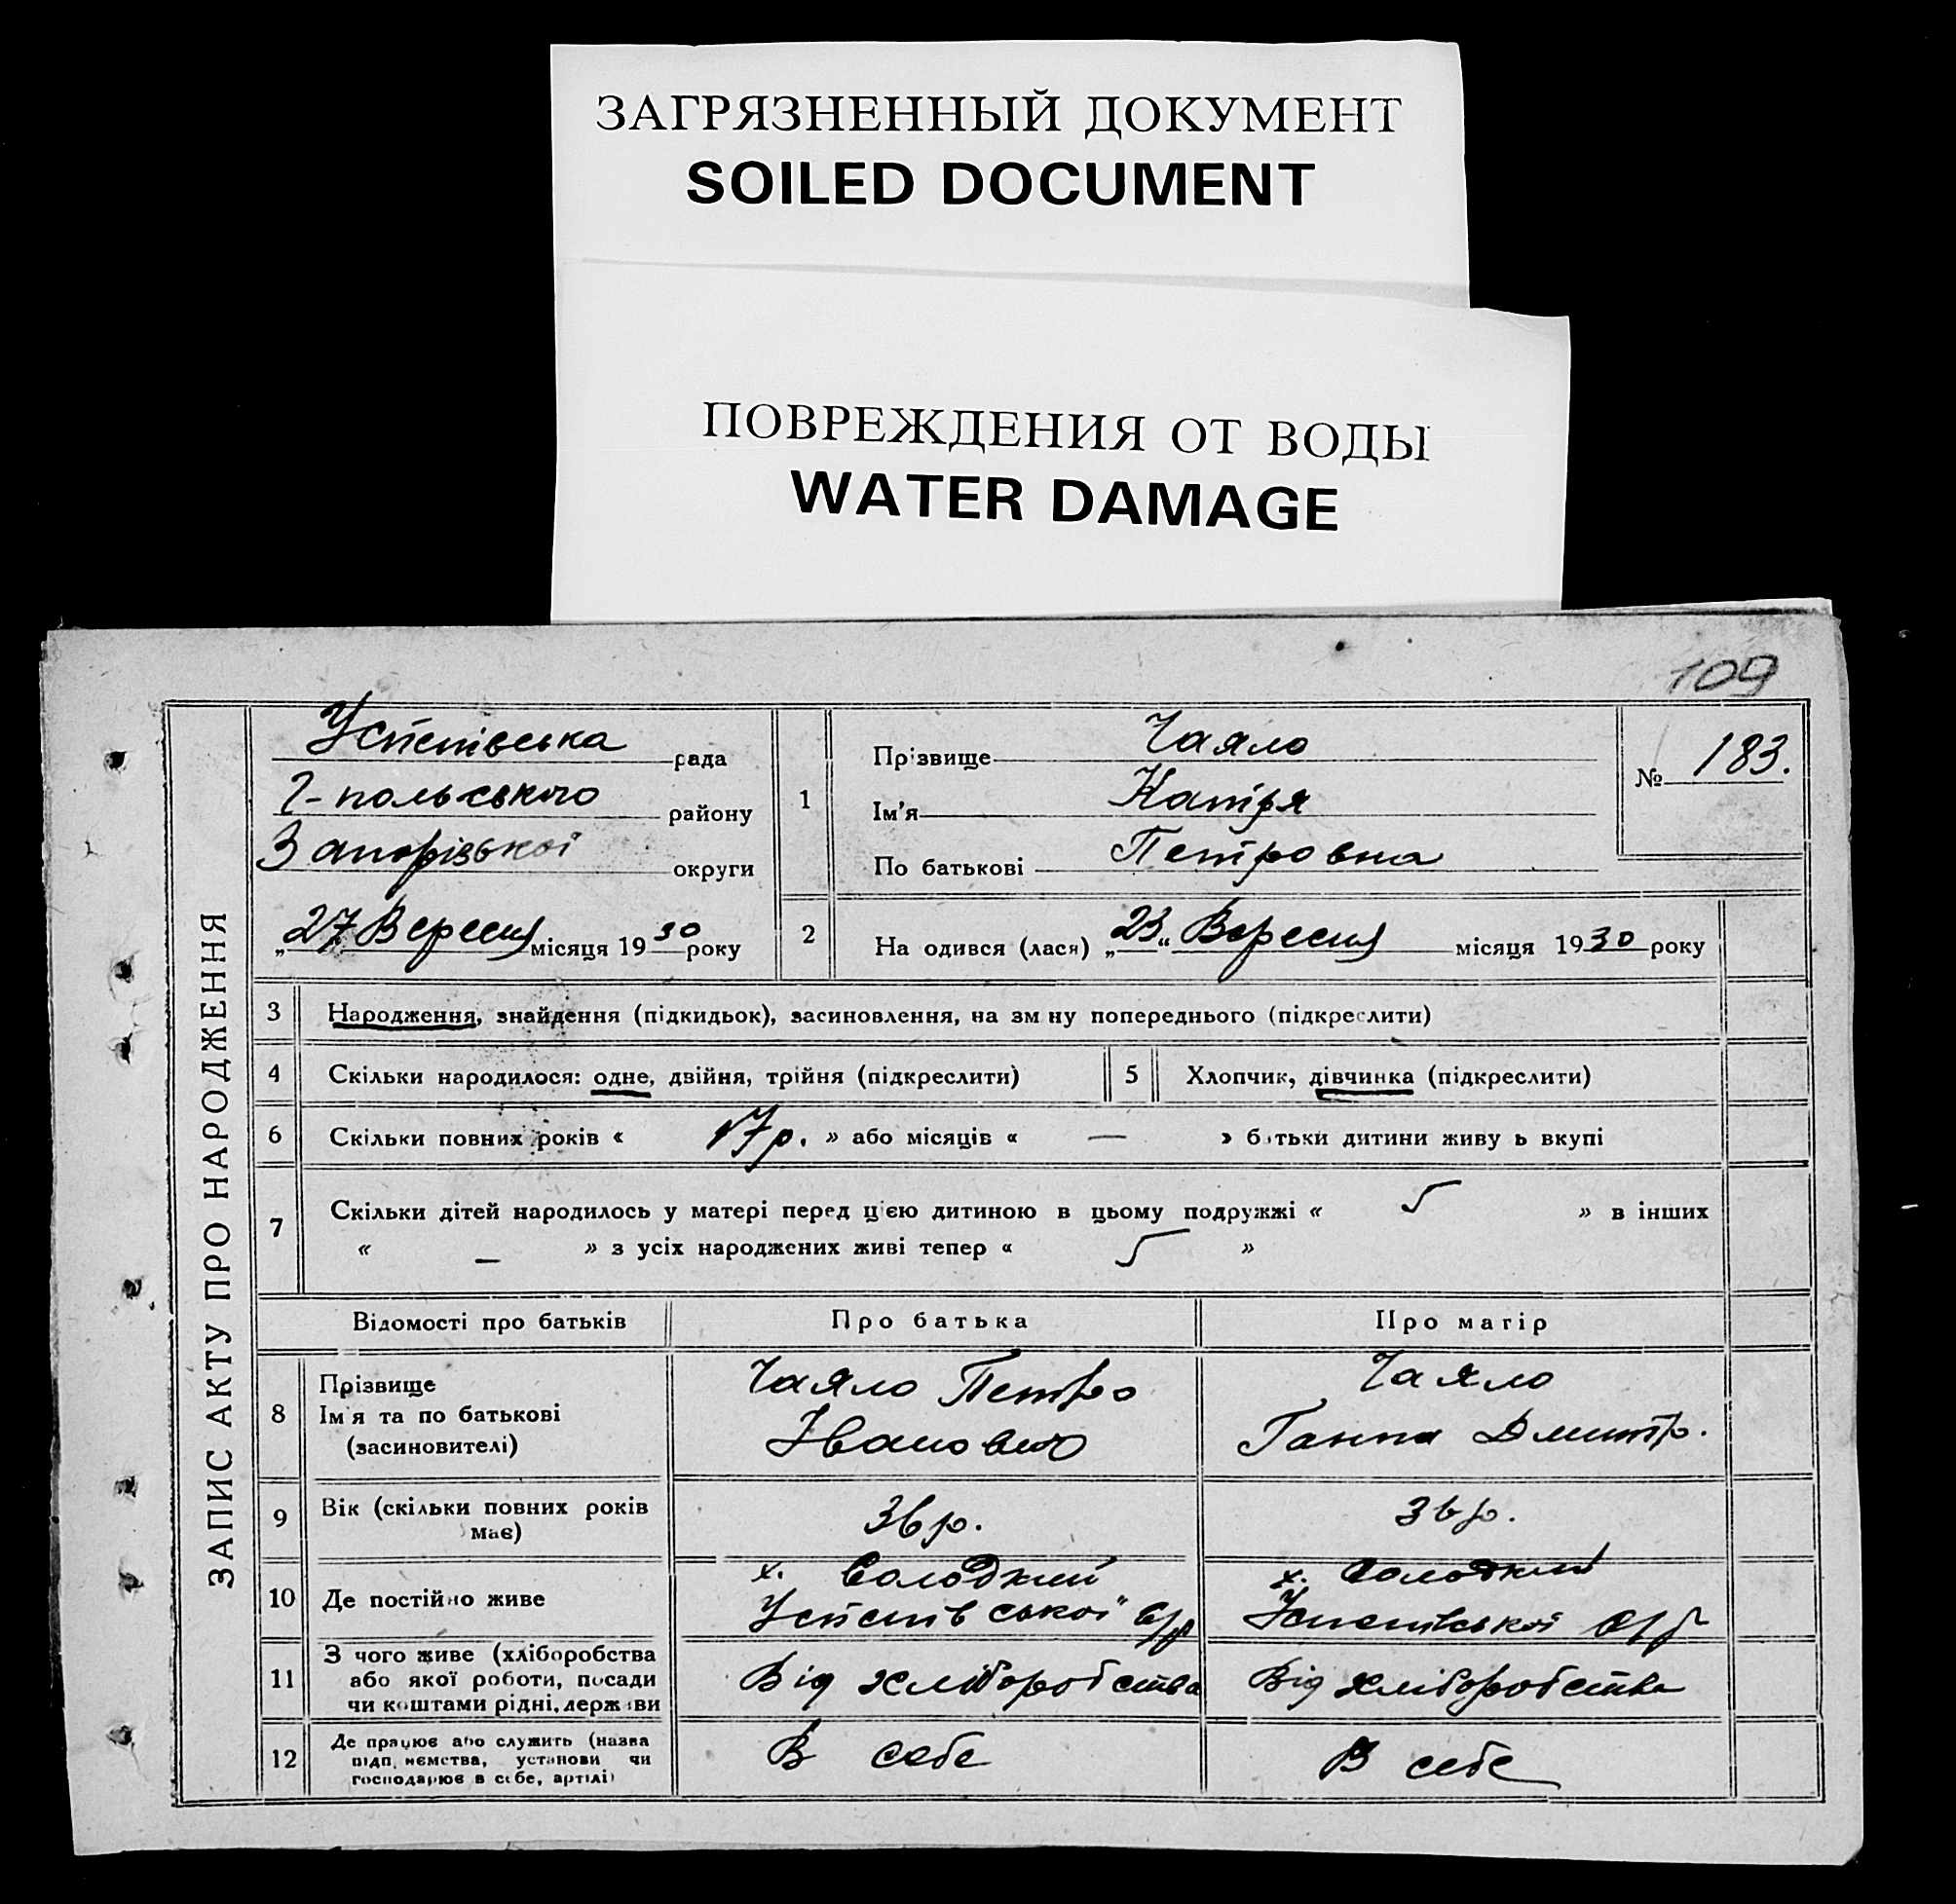 ЗАГРЯЗНЕННЫЙ ДОКУМЕНТ
SOILED DOCUMENT
ПОВРЕЖДЕНИЯ ОТ ВОДЫ
WATER DAMAGE
109
ЗАПИС АКТУ ПРО НАРОДЖЕННЯ
Успенівська рада
Г-польського району
Запорізької округи
„27 Вересня місяця 1930 року
1
Прізвище Чаяло
Ім'я Катря
По батькові Петровна
№ 183.
2 На одився (лася) „23“ Вересня місяця 1930 року
3 Народження, знайдення (підкидьок), засиновлення, на зм ну попереднього (підкреслити)
4 Скільки народилося: одне, двійня, трійня (підкреслити) 5 Хлопчик, дівчинка (підкреслити)
6 Скільки повних років « 17р. » або місяців « — » б тьки дитини живу ь вкупі
7 Скільки дітей народилось у матері перед цією дитиною в цьому подружжі « 5 » в інших
« — » з усіх народжених живі тепер « 5 »
Відомості про батьків Про батька Про матір
8 Прізвище
Ім'я та по батькові
(засиновителі)
Чаяло Петро
Іванович
Чаяло
Ганна Дмитр.
9 Вік (скільки повних років
має)
36 р.
36 р.
10 Де постійно живе
х. Солодкий
Успенівської с/р
х. Солодкий
Успенівської с/р
11 З чого живе (хліборобства
або якої роботи, посади
чи коштами рідні, держави
Від хліборобства
Від хліборобства
12 Де працює або служить (назва
підп иємства, установи чи
господарює в себе, артілі)
В себе
В себе